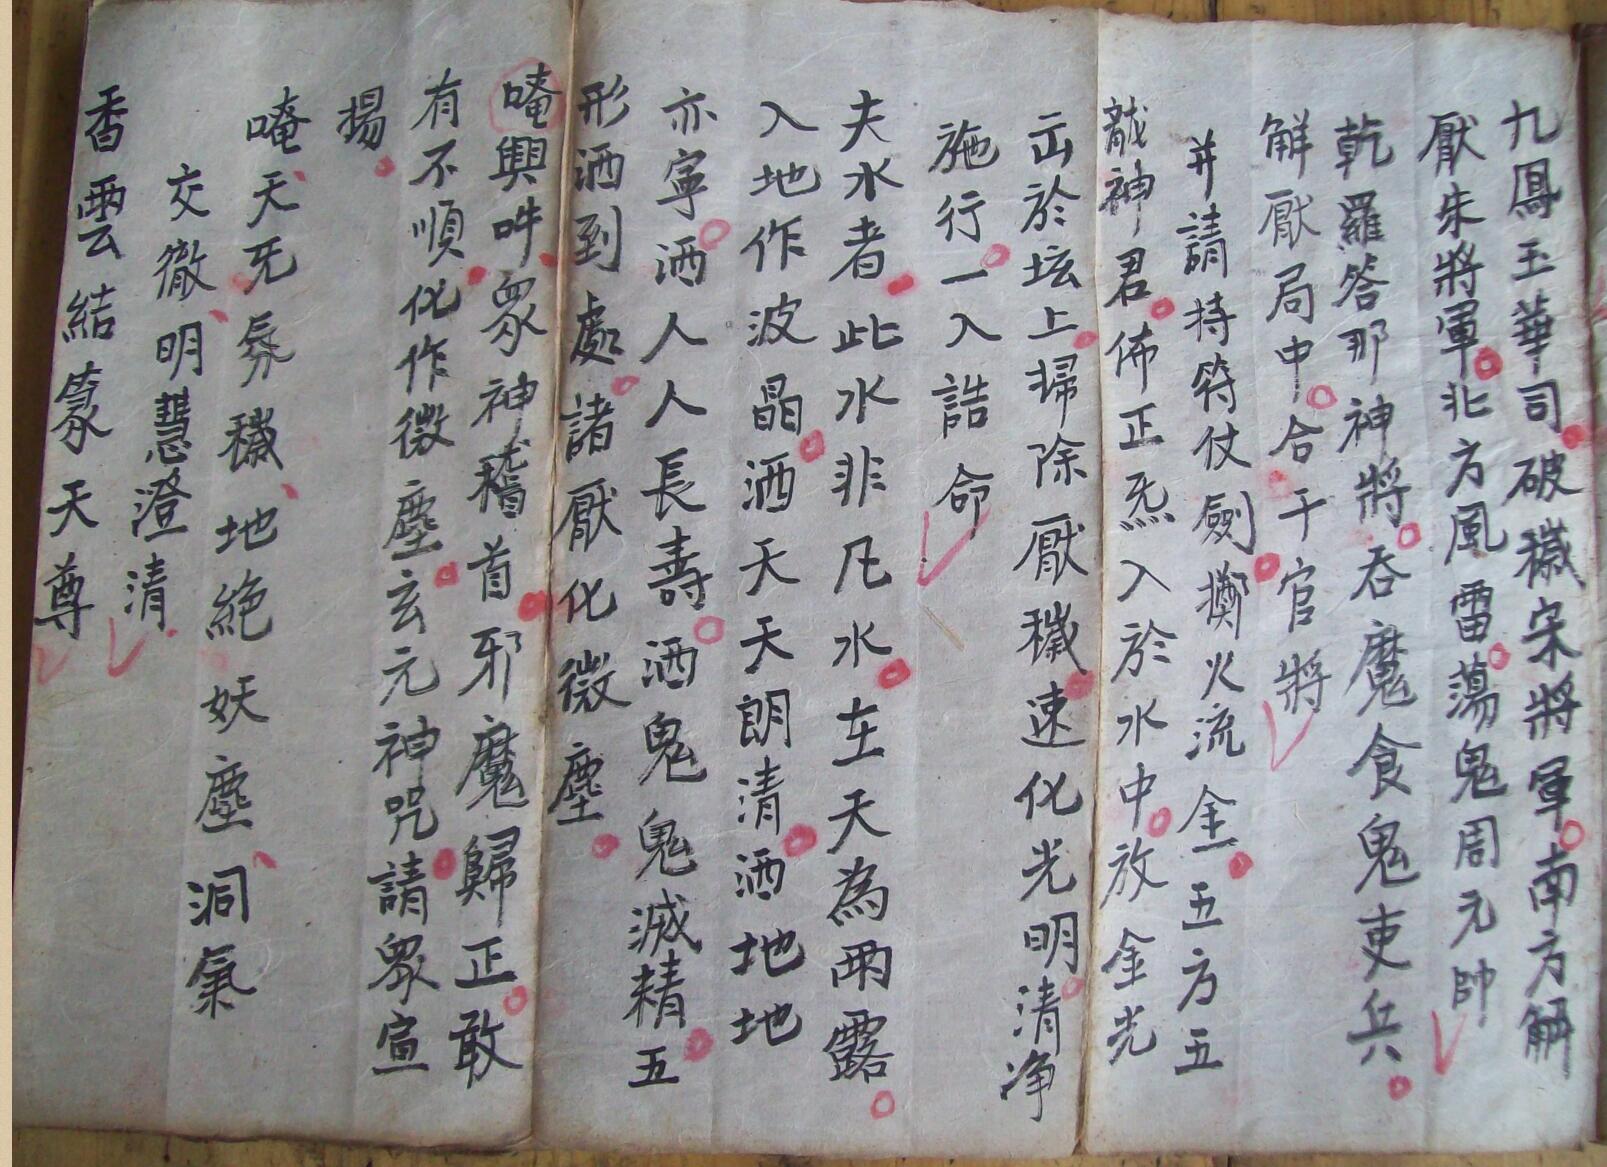 九鳳玉華司破穢宋將軍南方解
厭朱將軍北方風雷蕩鬼周元帥
乾羅答那神將吞魔食鬼吏兵
解厭局中合干官將
并請持符仗劍擲火流金五方五
龍神君佈正炁入於水中放金光
出於坛上掃除厭穢速化光明清净
施行一入誥命
夫水者此水非凡水在天為雨露
入地作波晶洒天天朗清洒地地
亦寧洒人人長壽洒鬼鬼滅精五
形洒到處諸厭化微塵
唵興吽眾神稽首邪魔歸正敢
有不順化作微塵玄元神咒請眾宣
揚
唵天旡氛穢地絕妖塵洞氣
交徹明慧澄清
香雲結篆天尊